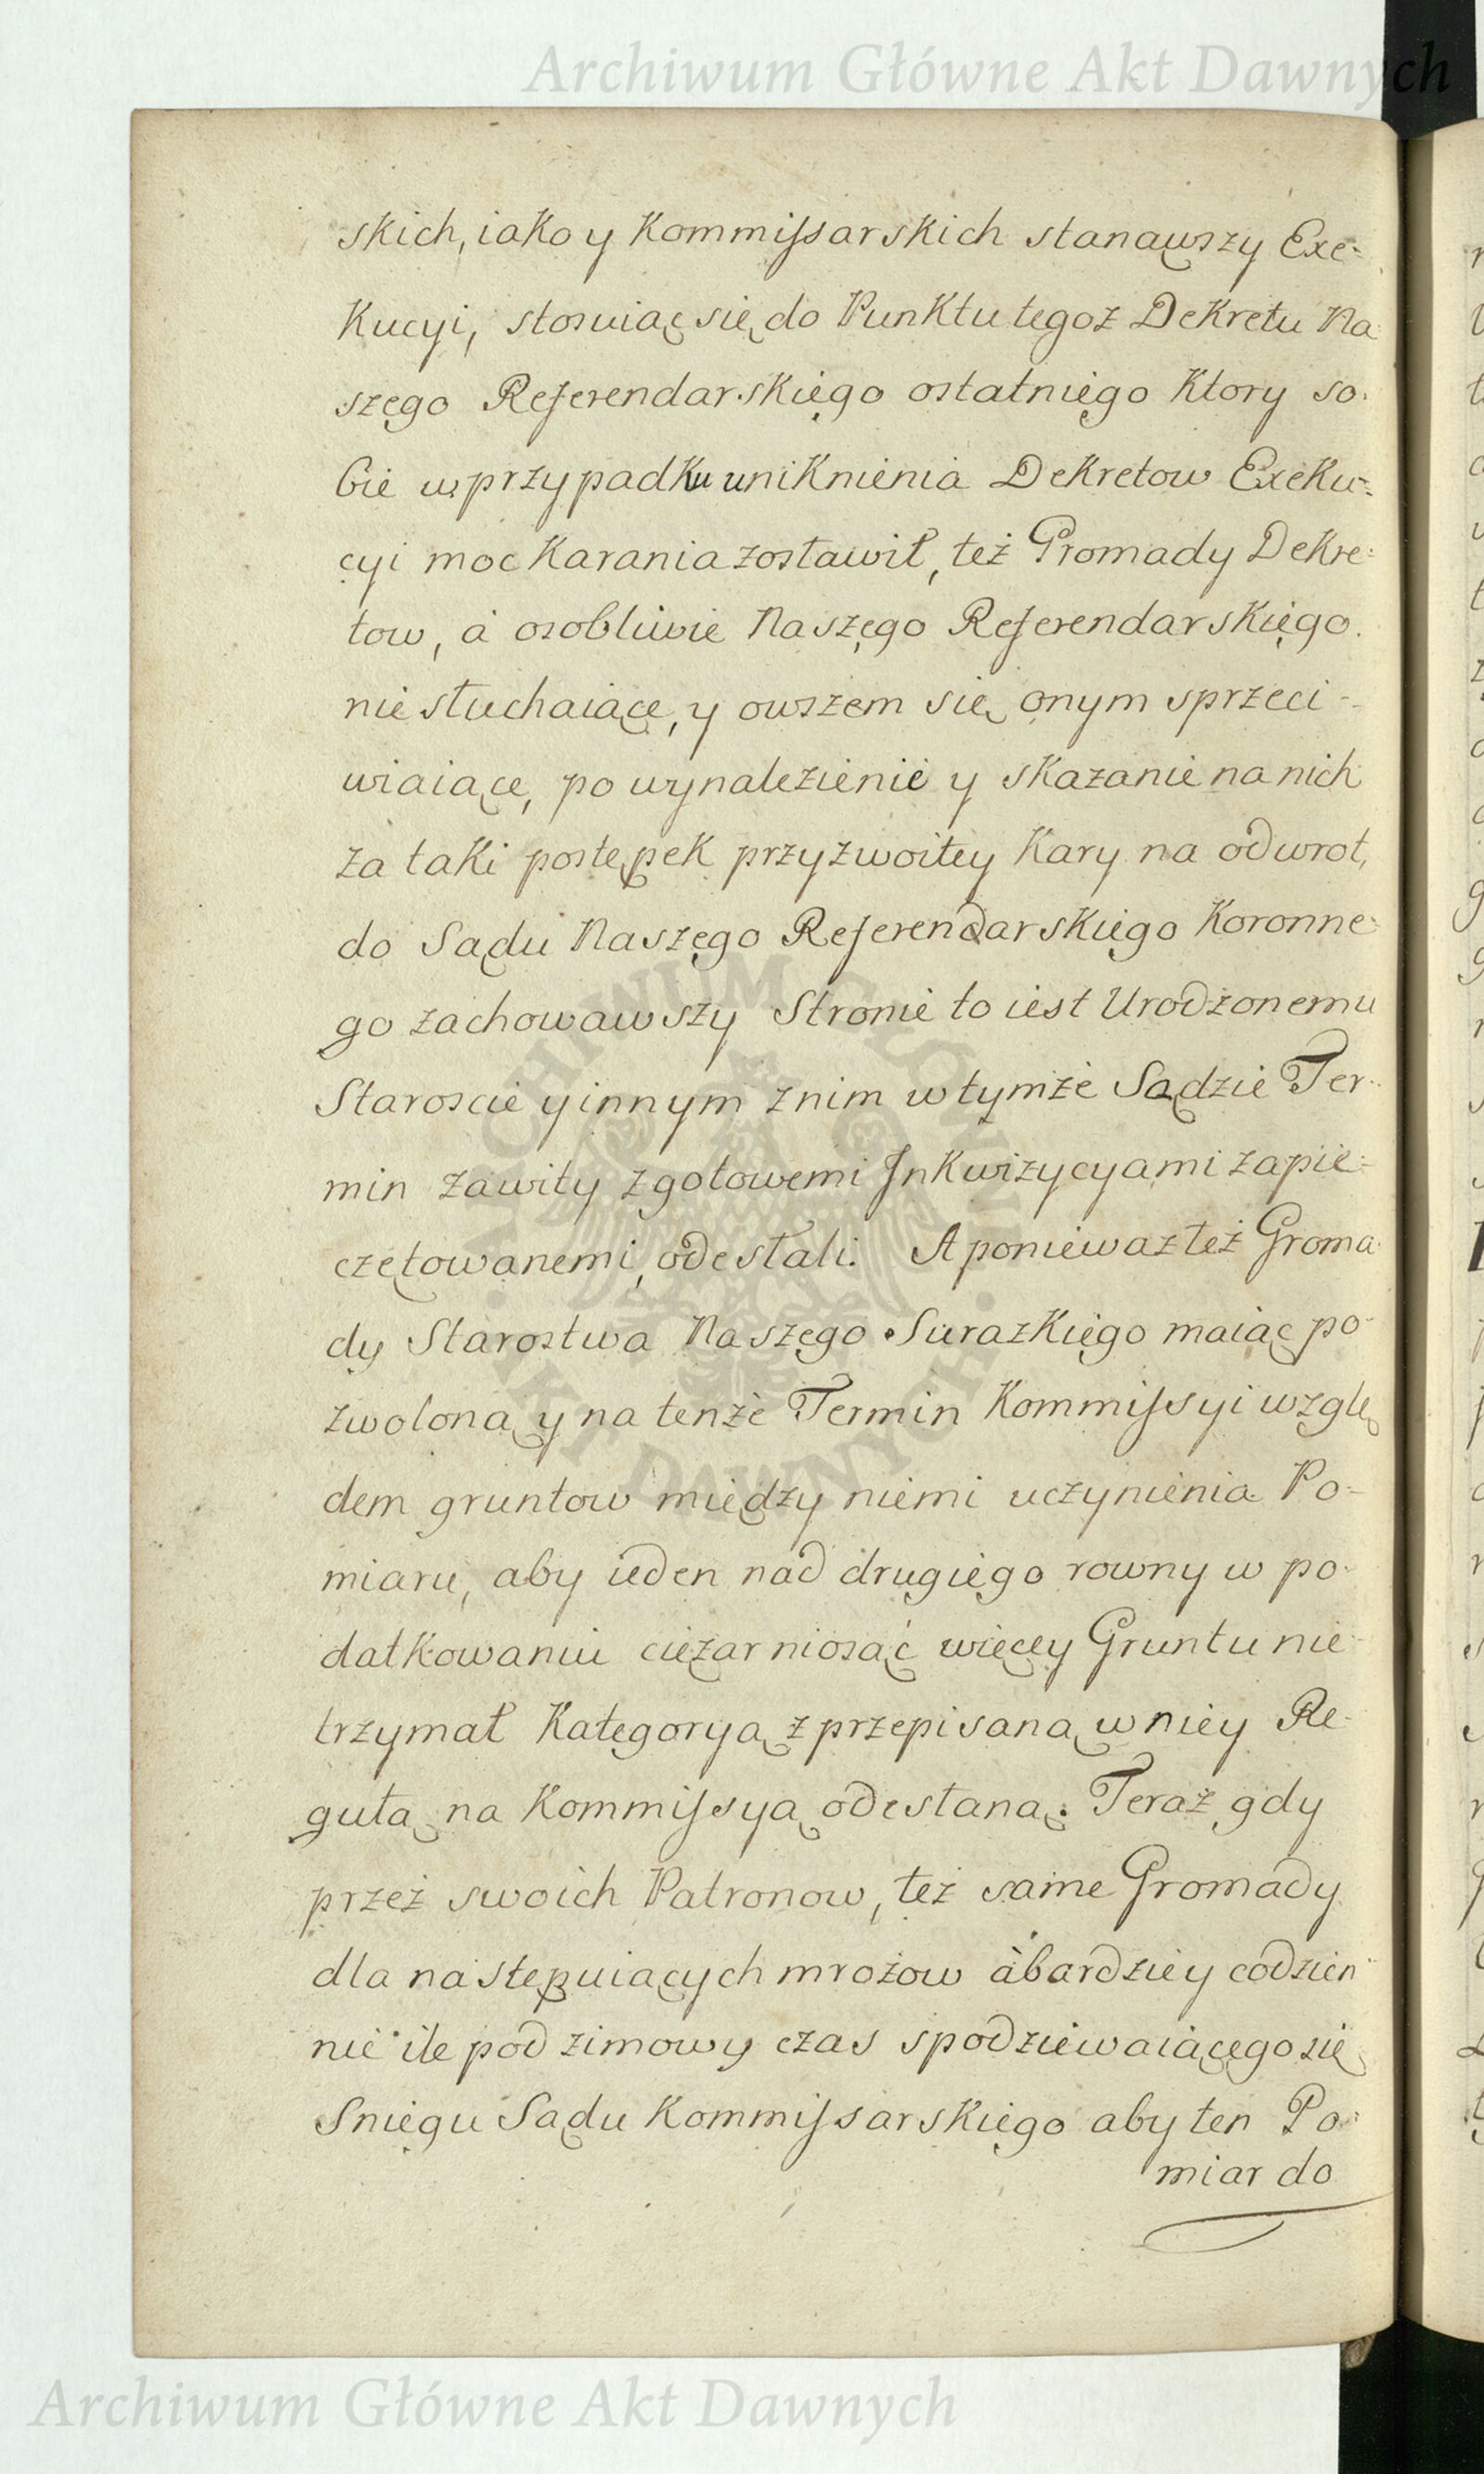 Archiwum Główne Akt Dawnych
skich, iako y Kommissarskich stanąwszy Exe-
kucyi, stosuiąc się do Punktu tegoż Dekretu Na
szego Referendarskiego ostatniego ktory so-
bie w przypadku uniknienia Dekretow Exeku-
cyi moc karania zostawił, też Gromady Dekre-
tow, á osobliwie Naszego Referendarskiego
nie słuchaiące, y owszem się onym sprzeci-
wiaiące, po wynalezienie y skazanie na nich
za taki postępek przyzwoitey kary na odwrot,
do Sądu Naszego Referendarskiego Koronne-
go zachowawszy Stronie to iest Urodzonemu
Staroscie y innym z nim w tymże Sądzie Ter-
min zawity z gotowemi Inkwizycyami zapie-
czętowanemi, odesłali. A ponieważ też Groma
dy Starostwa Naszego Surazkiego maiąc po-
zwoloną y na tenże Termin Kommissyi wzglę
dem gruntow między niemi uczynienia Po-
miaru, aby ieden nad drugiego rowny w po-
datkowaniu ciężar niosąc więcey Gruntu nie
trzymał Kategoryą z przepisaną w niey Re-
gułą na Kommissyą odesłaną. Teraz gdy
przez swoich Patronow, też same Gromady
dla następuiących mrozow á bardziey codzien
nie ile pod zimowy czas spodziewaiącego się
Sniegu Sądu Kommissarskiego aby ten Po-
miar do
Archiwum Główne Akt Dawnych